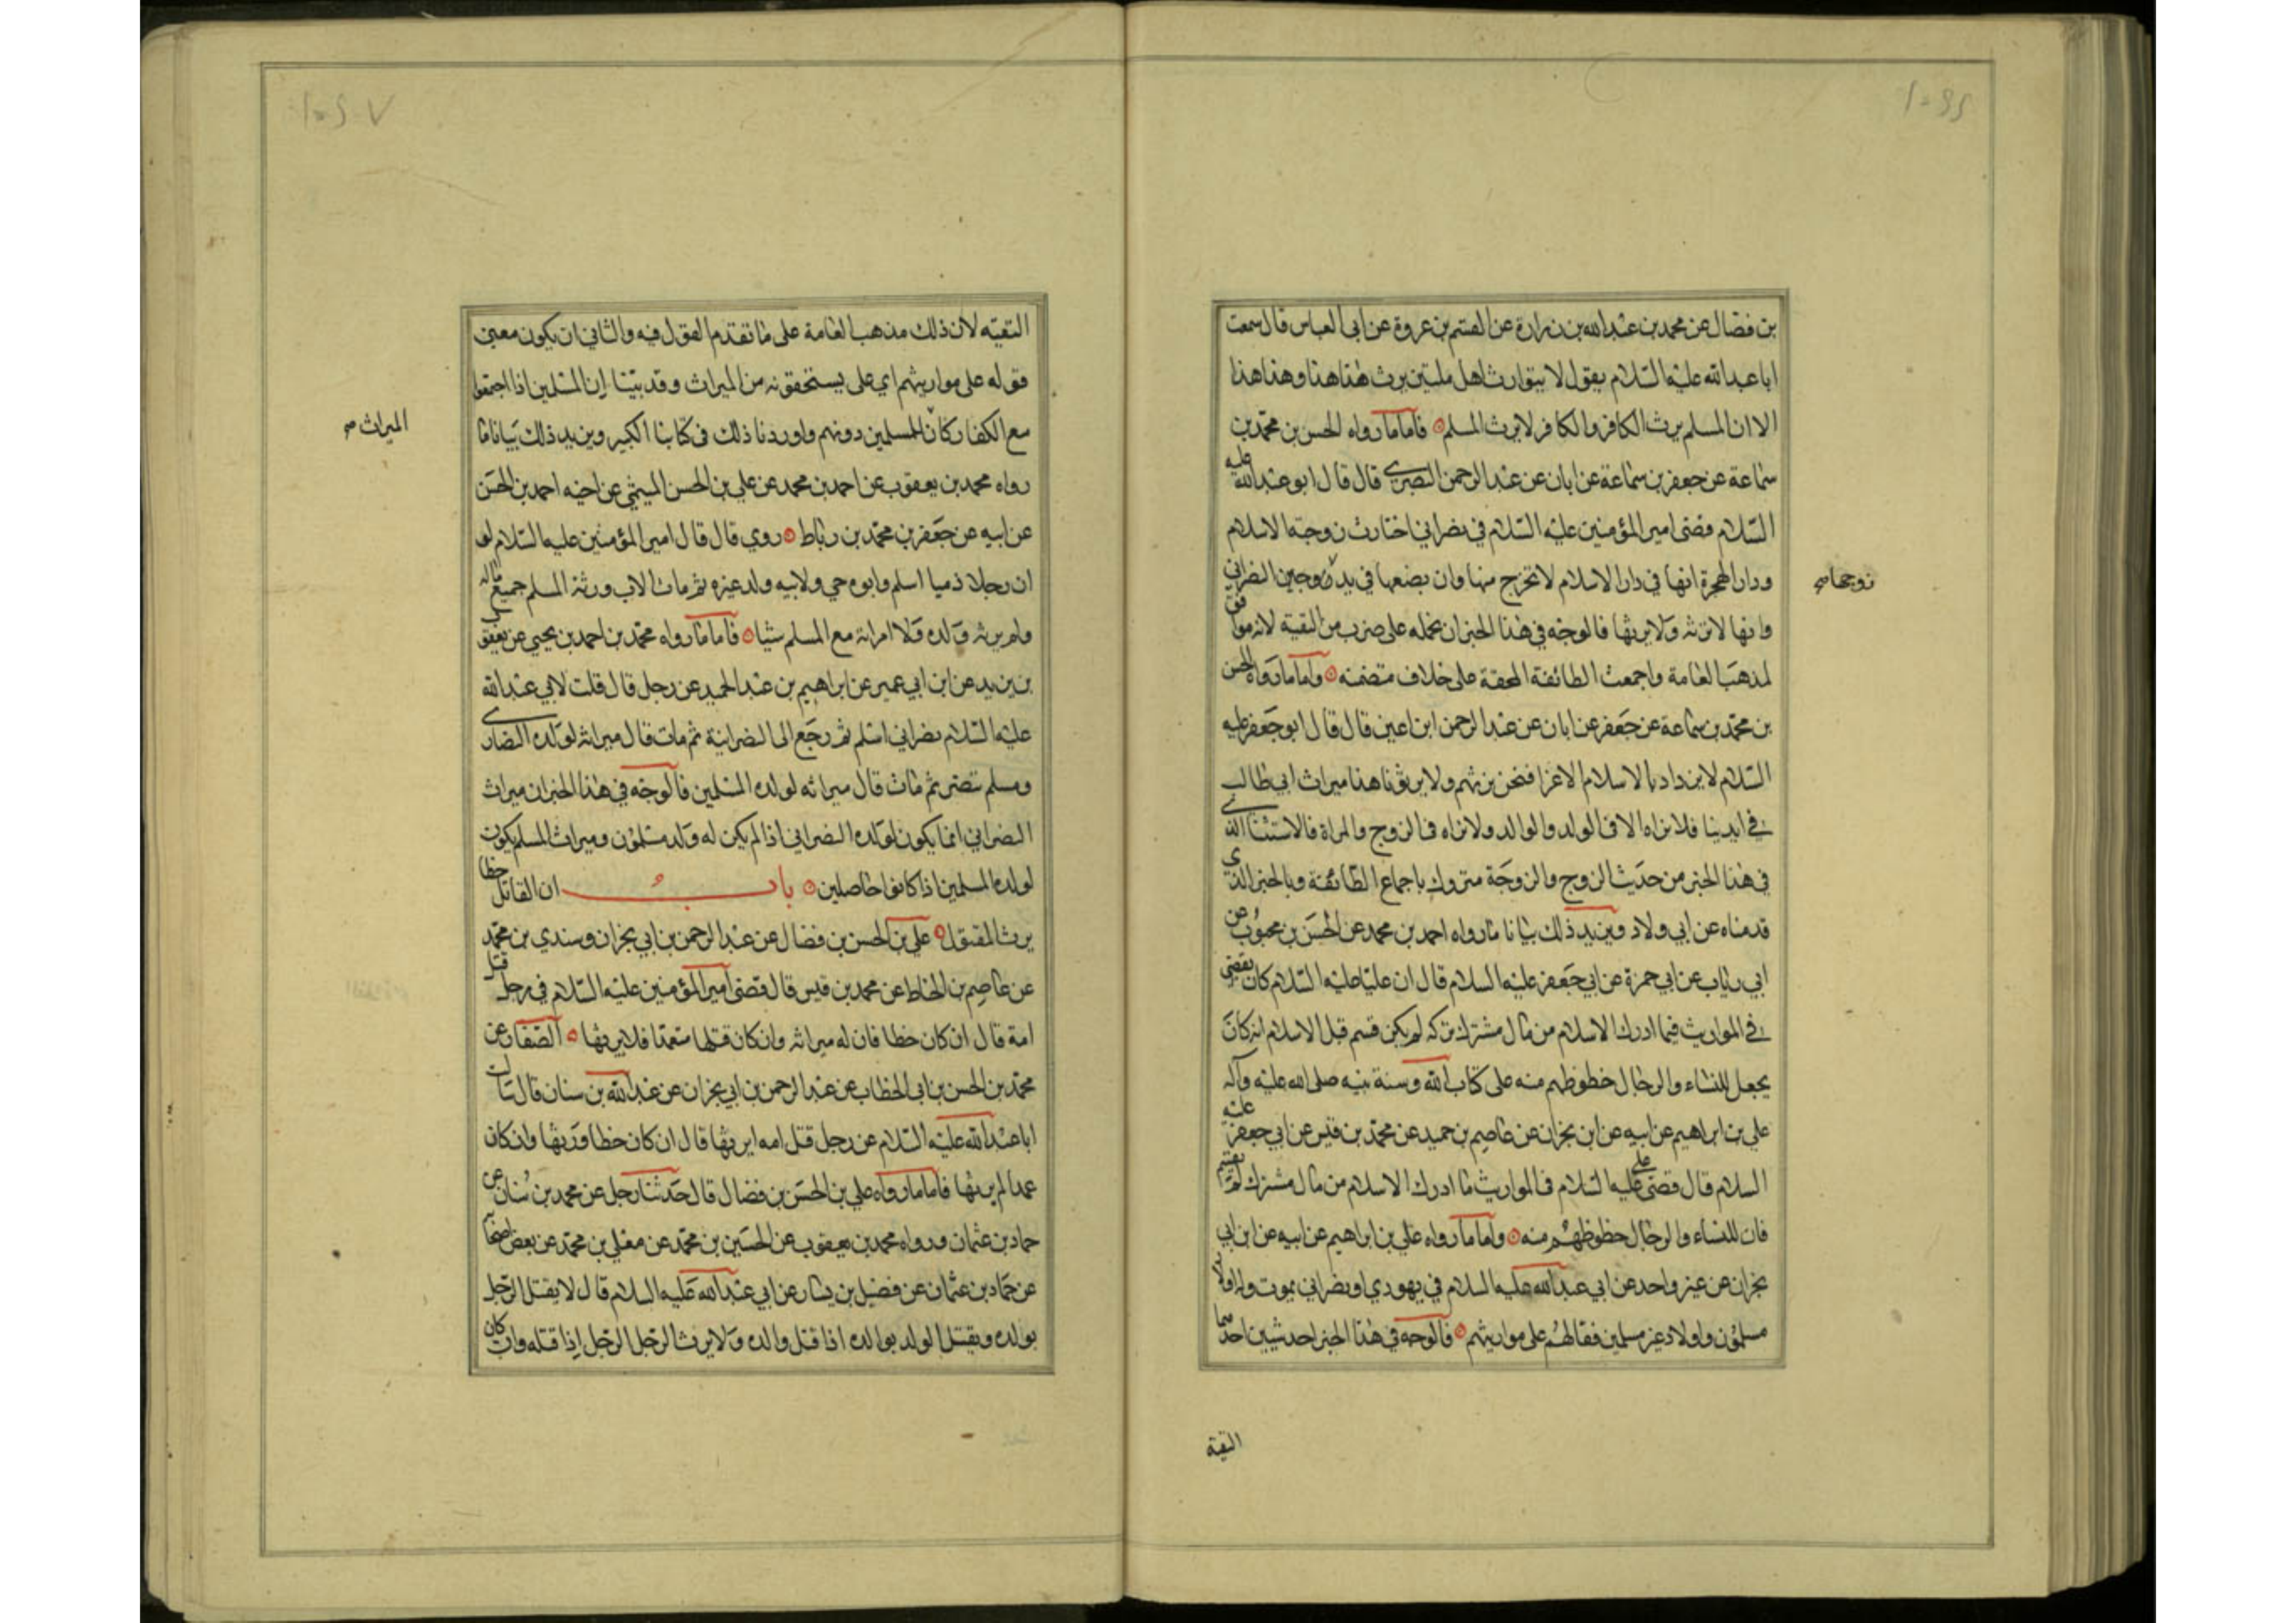 بن فضال عن محمد بن عبد الله بن زرارة عن القسم بن عروة عن ابي العباس قال سمعت
ابا عبد الله عليه السلام يقول لا يتوارث اهل ملتين يرث هذا هذا وهذا هذا
الا ان المسلم يرث الكافر والكافر لا يرث المسلم فاما ما رواه الحسن بن محمد بن
سماعة عن جعفر بن سماعة عن ابان عن عبد الرحمن البصري قال قال ابو عبد الله عليه
السلام قضى امير المؤمنين عليه السلام في نصراني اختارت زوجته الاسلام
ودار الهجرة انها في دار الاسلام لا تخرج منها وان بضعها في يد زوجها النصراني
وانها لا ترثه ولا يرثها فالوجه في هذا الخبر ان نحمله على ضرب من التقية لانه موافق
لمذهب العامة واجمعت الطائفة المحقة على خلاف متضمنه واما ما رواه الحسن
بن محمد بن سماعة عن جعفر عن ابان عن عبد الرحمن ابن اعين قال قال ابو جعفر عليه
السلام لا يزداد بالاسلام الا عزا فنحن نرثهم ولا يرثونا هذا ميراث ابي طالب
في ايدينا فلا نراه الا في الولد والوالد ولا نراه في الزوج والمراة فالاستثنا الذي
في هذا الخبر من حديث الزوج والزوجة متروك باجماع الطائفة وبالخبر الذي
قدمناه عن ابي ولاد ويزيد ذلك بيانا ما رواه احمد بن محمد عن الحسن بن محبوب عن
ابي رياب عن ابي حمزة عن ابي جعفر عليه السلام قال ان عليا عليه السلام كان يقضي
في المواريث فيما ادرك الاسلام من مال مشترك تركه لم يكن قسم قبل الاسلام انه كان
يجعل للنساء والرجال حظوظهم منه على كتاب الله وسنة نبيه صلى الله عليه وآله
علي بن ابراهيم عن ابيه عن ابن نجران عن عاصم بن حميد عن محمد بن قيس عن ابي جعفر عليه
السلام قال قضى علي عليه السلام في المواريث ما ادرك الاسلام من مال مشترك لم يقسم
فان للنساء والرجال حظوظهم منه واما ما رواه علي بن ابراهيم عن ابيه عن ابن ابي
نجران عن غير واحد عن ابي عبد الله عليه السلام في يهودي او نصراني يموت وله اولاد
مسلمون واولاد غير مسلمين فقال هم على مواريثهم فالوجه في هذا الخبر احد شيين احدهما
زوجها صح
التقية
التقيه لان ذلك مذهب العامة على ما تقدم القول فيه والثاني ان يكون معنى
قوله على مواريثهم اي على يستحقونه من الميراث وقد بينا ان المسلمين اذا اجتمعوا
مع الكفار كان للمسلمين دونهم واوردنا ذلك في كتابنا الكبير ويزيد ذلك بيانا ما
رواه محمد بن يعقوب عن احمد بن محمد عن علي بن الحسن الميثمي عن اخيه احمد بن الحسن
عن ابيه عن جعفر بن محمد بن رباط روي قال قال امير المؤمنين عليه السلام لو
ان رجلا ذميا اسلم وابوه حي ولابيه ولد غيره ثم مات الاب ورثه المسلم جميع ماله
ولم يرثه ولده ولا امراته مع المسلم شيا فاما ما رواه محمد بن احمد بن يحيى عن يعقوب
بن يزيد عن ابن ابي عمير عن ابراهيم بن عبد الحميد عن رجل قال قلت لابي عبد الله
عليه السلام نصراني اسلم ثم رجع الى النصرانية ثم مات قال ميراثه لولده النصارى
ومسلم تنصر ثم مات قال ميراثه لولده المسلمين فالوجه في هذا الخبر ان ميراث
النصراني انما يكون لولده النصراني اذا لم يكن له ولد مسلمون وميراث المسلم يكون
لولده المسلمين اذا كانوا حاصلين باب ان القاتل خطا
يرث المقتول علي بن الحسن بن فضال عن عبد الرحمن بن ابي نجران وسندي بن محمد
عن عاصم بن الحناط عن محمد بن قيس قال قضى امير المؤمنين عليه السلام في رجل قتل
امه قال ان كان خطا فان له ميراثه وان كان قتلها متعمدا فلا يرثها الصفار عن
محمد بن الحسن بن ابي الخطاب عن عبد الرحمن بن ابي نجران عن عبد الله بن سنان قال سالت
ابا عبد الله عليه السلام عن رجل قتل امه ايرثها قال ان كان خطا ورثها وان كان
عمدا لم يرثها فاما ما رواه علي بن الحسن بن فضال قال حدثنا رجل عن محمد بن سنان عن
حماد بن عثمان ورواه محمد بن يعقوب عن الحسين بن محمد عن معلى بن محمد عن بعض اصحابه
عن حماد بن عثمان عن فضيل بن يسار عن ابي عبد الله عليه السلام قال لا يقتل الرجل
بولده ويقتل الولد بوالده اذا قتل والده ولا يرث الرجل الرجل اذا قتله وان كان
الميراث صح